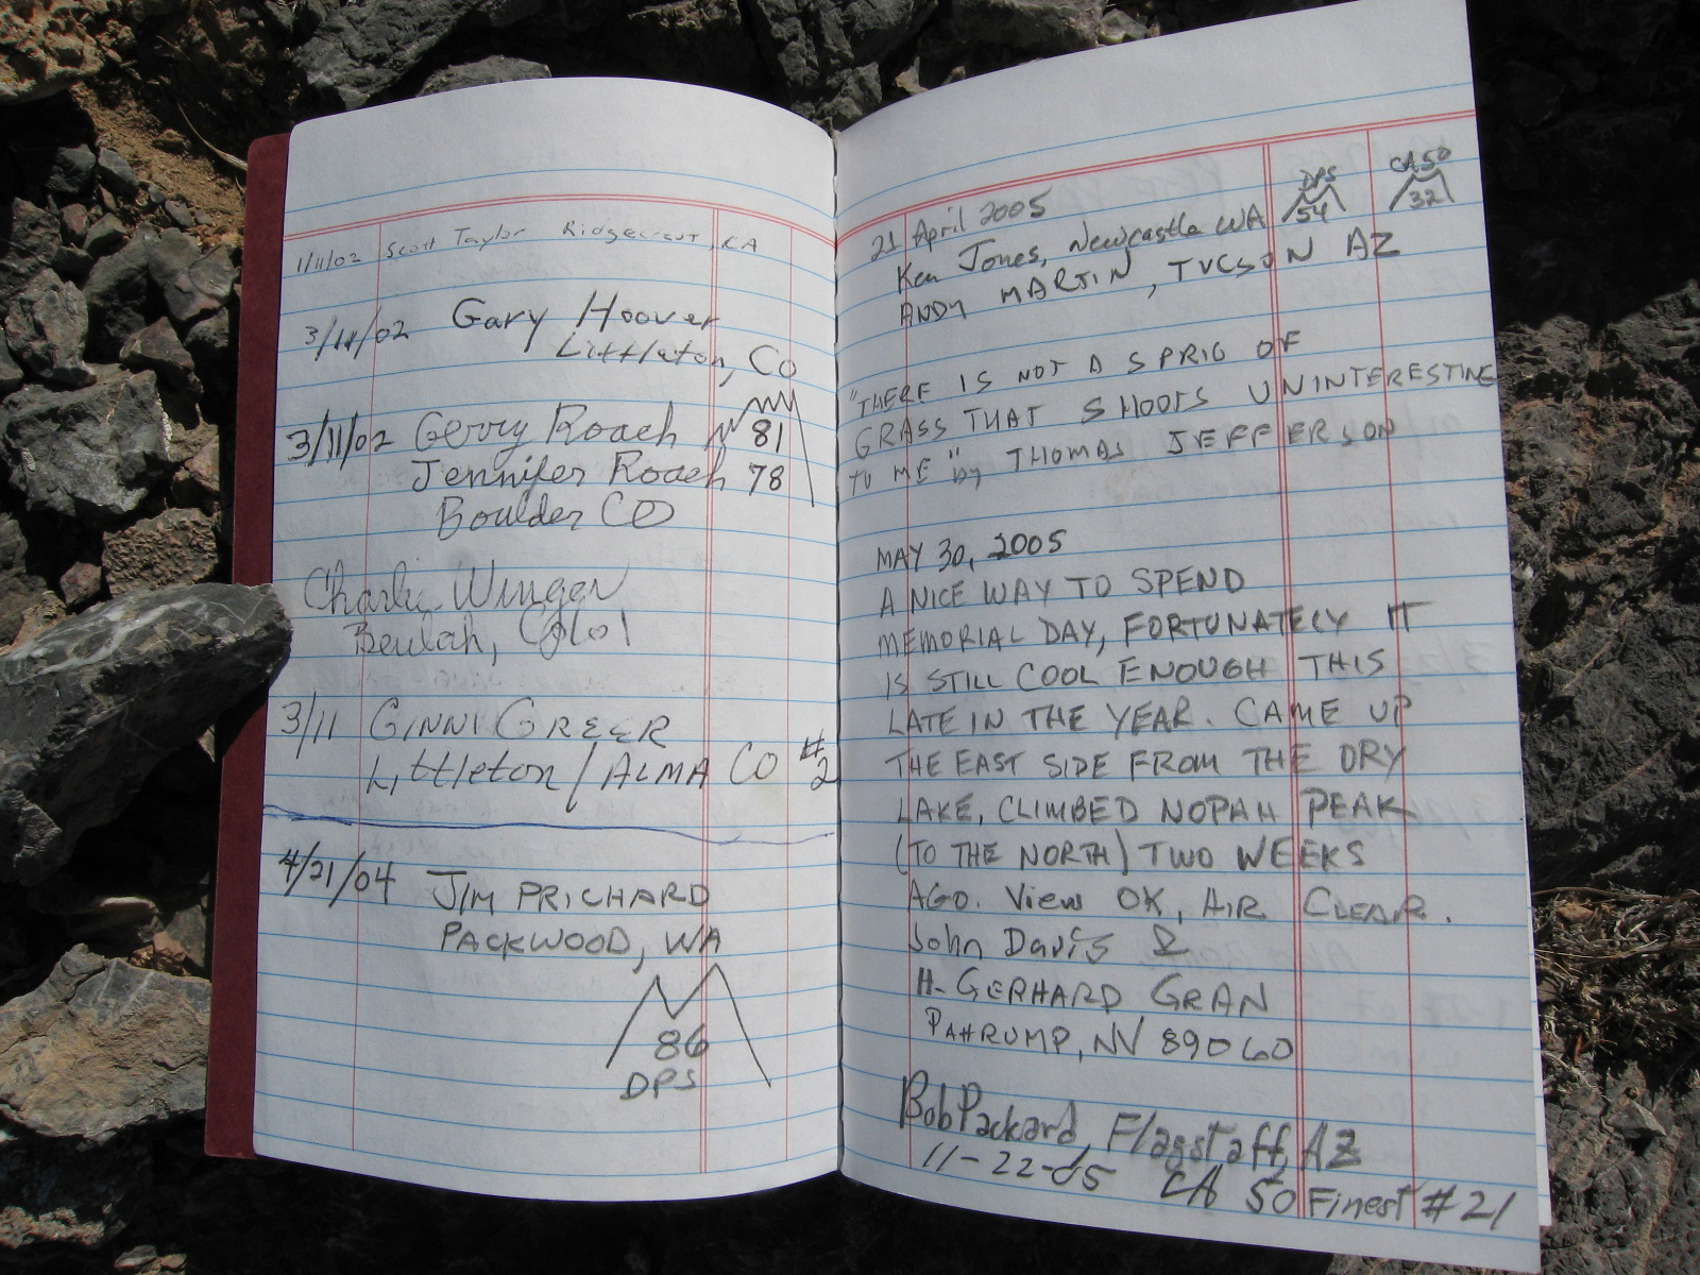 1/11/02 Scott Taylor Ridgecrest, CA
3/11/02 Gary Hoover
Littleton, CO
3/11/02 Gerry Roach 81
Jennifer Roach 78
Boulder CO
Charlie Winger
Beulah, Colo
3/11 GINNI GREER
Littleton / ALMA CO #2
4/21/04 JIM PRICHARD
PACKWOOD, WA
86
DPS
DPS CA 50
54 32
21 April 2005
Ken Jones, Newcastle WA
ANDY MARTIN, TUCSON AZ
"THERE IS NOT A SPRIG OF
GRASS THAT SHOOTS UNINTERESTING
TO ME" by THOMAS JEFFERSON
MAY 30, 2005
A NICE WAY TO SPEND
MEMORIAL DAY, FORTUNATELY IT
IS STILL COOL ENOUGH THIS
LATE IN THE YEAR. CAME UP
THE EAST SIDE FROM THE DRY
LAKE, CLIMBED NOPAH PEAK
(TO THE NORTH) TWO WEEKS
AGO. View OK, AIR CLEAR.
John Davis &
H. GERHARD GRAN
PAHRUMP, NV 89060
Bob Packard, Flagstaff, AZ
11-22-05 CA 50 Finest #21